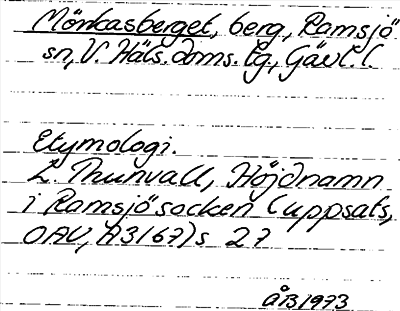 Mörkasberget, berg, Ramsjö
sn, V. Häls. doms. tg., Gävl. l.
Etymologi.
L Thunvall, Höjdnamn
i Ramsjö socken (uppsats,
OAU, A3167)s 27
ÅB 1973